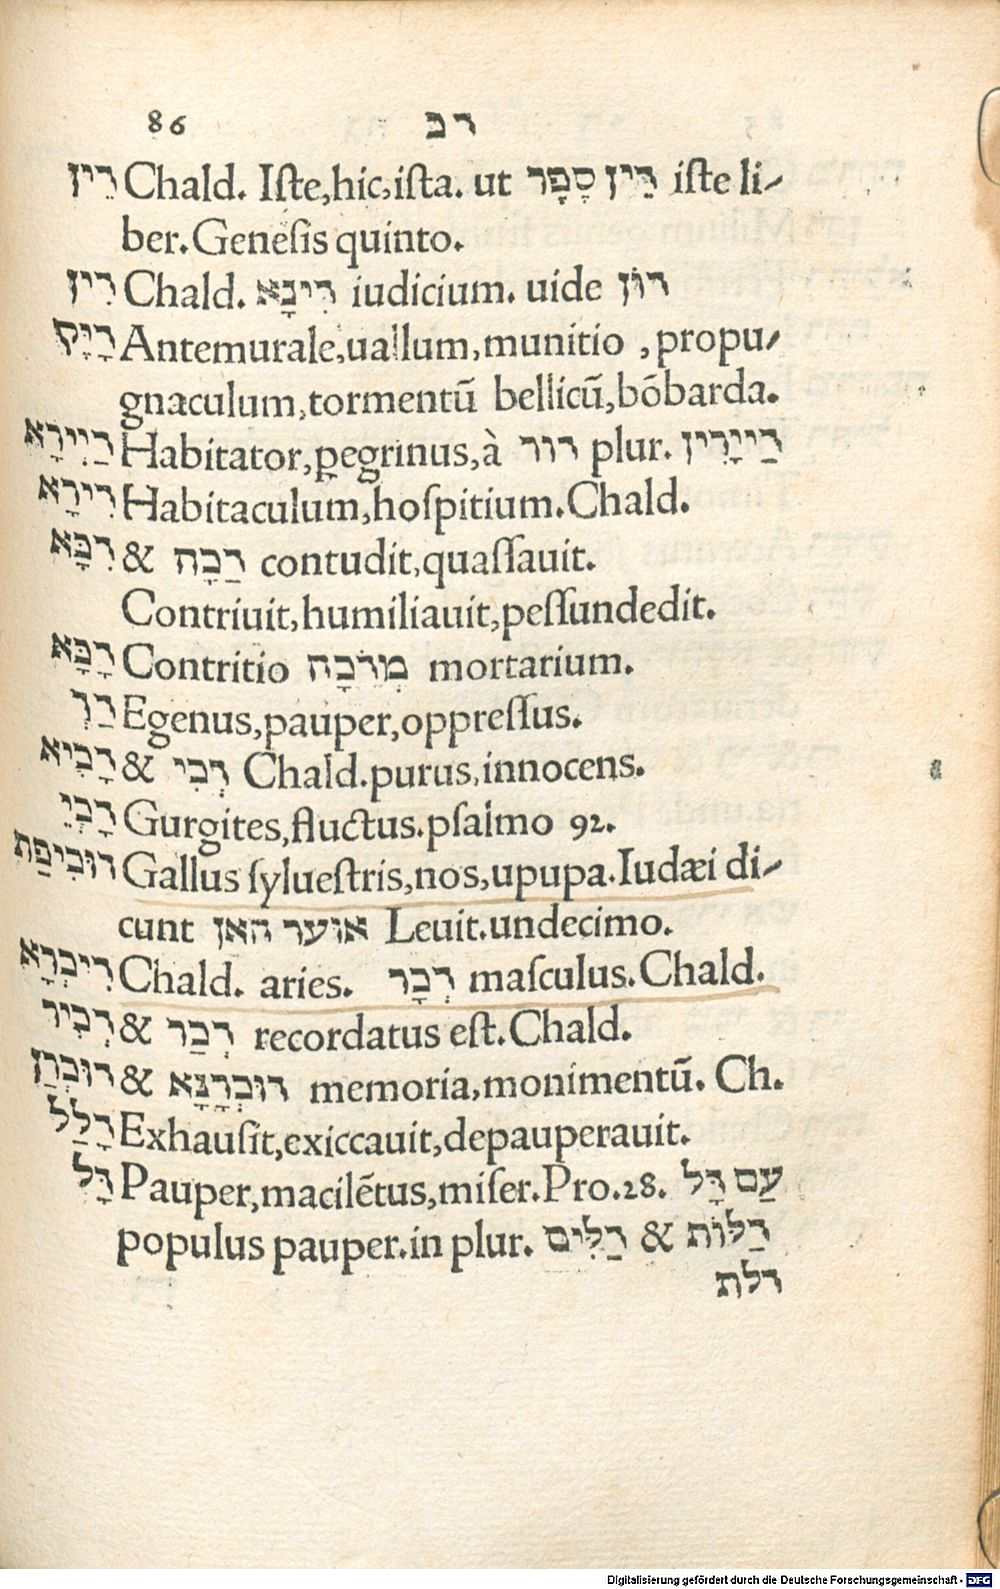 86 דכ
דֵּין Chald. Iſte,hic,iſta. ut דֵּין סְפָר iſte li-
ber. Geneſis quinto.
דִּין Chald. דִּינָא iudicium. uide דּוּן
דָּיֵק Antemurale,uallum,munitio ,propu-
gnaculum,tormentū bellicū,bōbarda.
דַּיְירָא Habitator,ꝑegrinus,à דור plur. דַּיָירִין
דִּירָא Habitaculum,hoſpitium.Chald.
דִּכָּא & דַּכָה contudit,quaſſauit.
Contriuit,humiliauit,peſſundedit.
דָּכָּא Contritio מְדֹכָה mortarium.
דַּךְ Egenus,pauper,oppreſſus.
דָּכִיא & דְּכִי Chald.purus,innocens.
דָּכְיֵ Gurgites,fluctus.pſalmo 92.
דוּכִיפַת Gallus ſylueſtris,nos,upupa.Iudæi di-
cunt אוער האן Leuit.undecimo.
דִיכְרָא Chald. aries. דְּכָר maſculus.Chald.
דְּכִיר & דְּכַר recordatus eſt.Chald.
דּוּכְרַן & דּוּכְרָנָא memoria,monimentū. Ch.
דָּלַל Exhauſit,exiccauit,depauperauit.
דָּל Pauper,macilētus,miſer.Pro.28. עַם דָּל
populus pauper.in plur. דַּלִּים & דַּלּוֹת
דלת
Digitalisierung gefördert durch die Deutsche Forschungsgemeinschaft - DFG